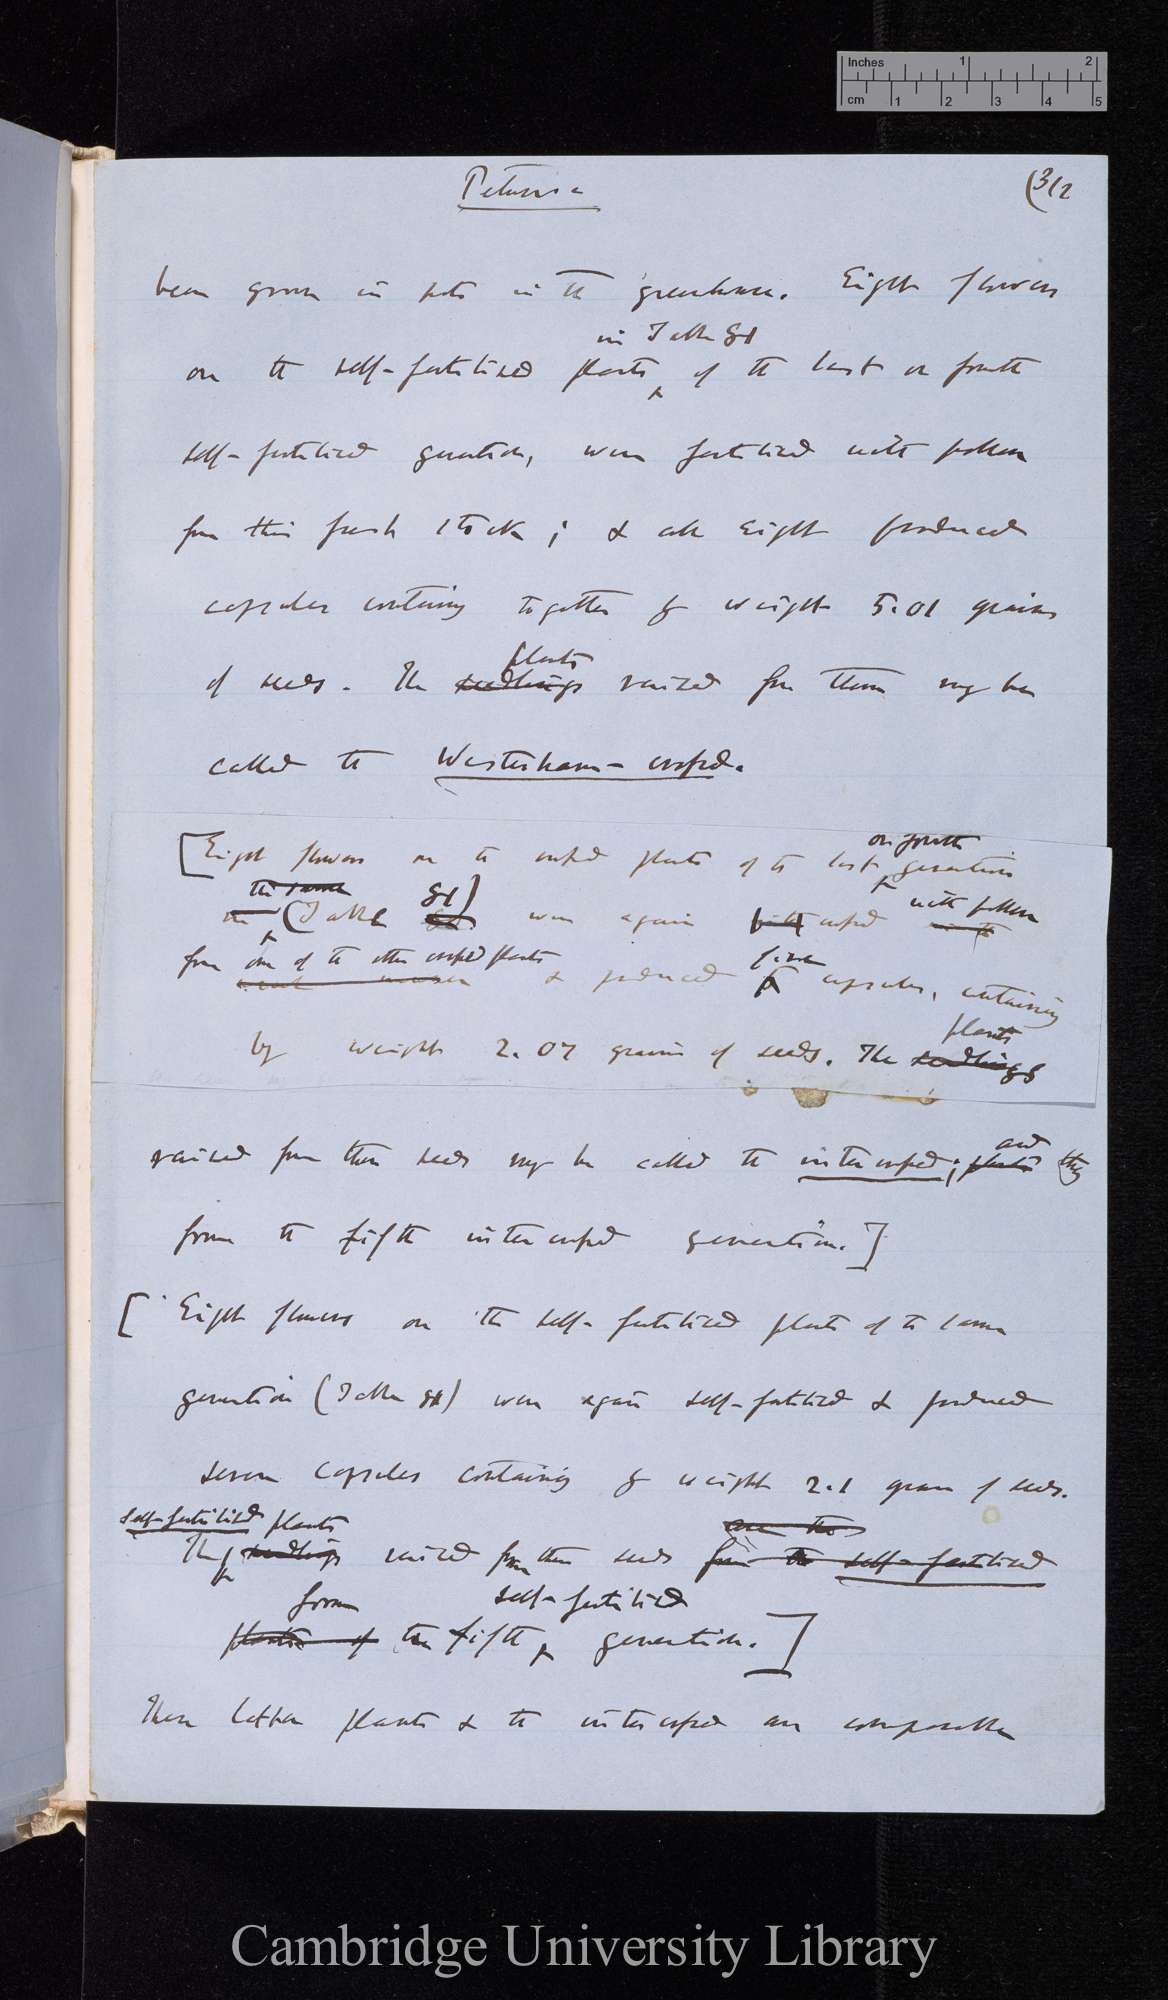 Inches 1 2
cm 1 2 3 4 5
Petunia
(312
been grown in pots in the greenhouse. Eight flowers
in Table 81
on the self-fertilised plants of the last or fourth
self-fertilised generation, were fertilised with pollen
from this fresh stock; & all eight produced
capsules containing together by weight 5.01 grains
plants
of seeds. The seedlings raised from them may be
called the Westerham-crossed.
or fourth
[Eight flowers on the crossed plants of the last generation
the same 81]
in (Table were again crossed with pollen
from one of the other crossed plants & produced five capsules, containing
plants
by weight 2.07 grains of seeds. The seedlings
and
raised from these seeds may be called the intercrossed; plants they
form the fifth intercrossed generation.]
[Eight flowers on the self-fertilised plants of the same
generation (Table 81) were again self-fertilised & produced
seven capsules containing by weight 2.1 grains of seeds.
self-fertilised plants are the
The seedlings raised from these seeds form the self-fertilised
form self-fertilised
plants of the fifth generation.]
These latter plants & the intercrossed are comparable
Cambridge University Library